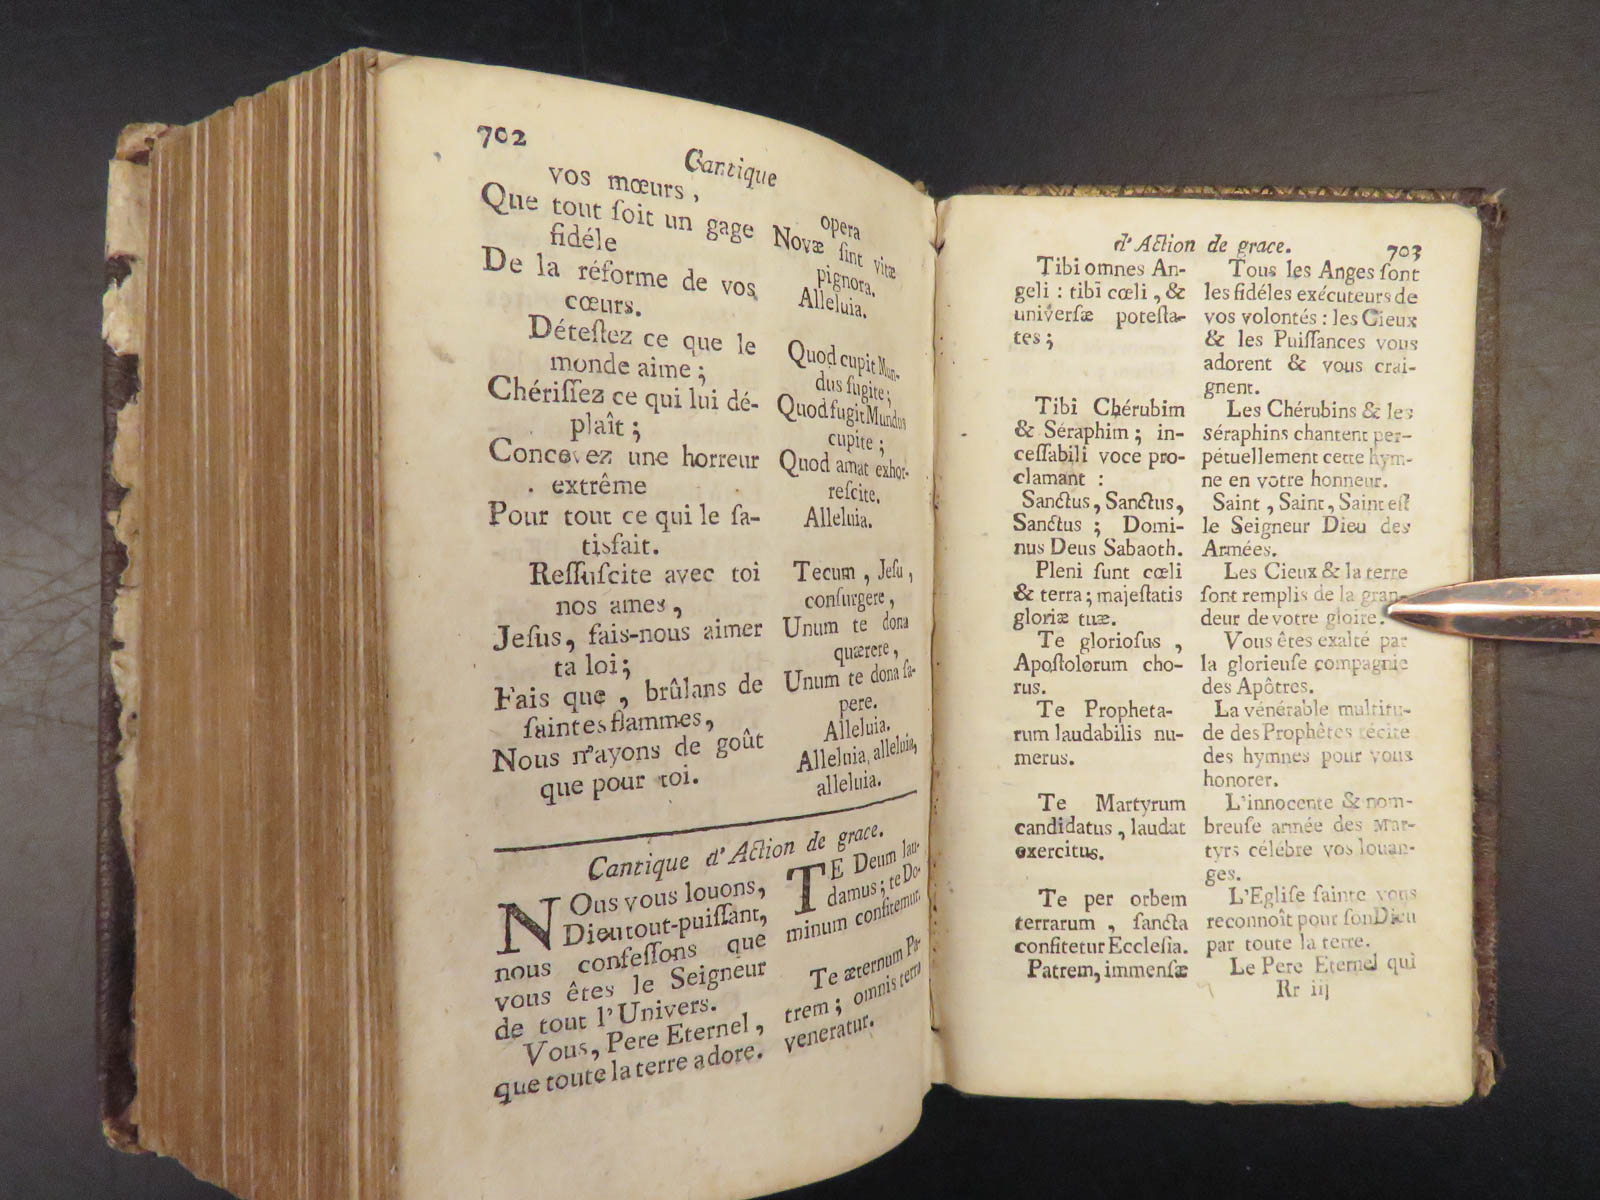 702
Cantique
vos mœurs,
Que tout ſoit un gage
fidéle
De la réforme de vos
cœurs.
Déteſtez ce que le
monde aime;
Chériſſez ce qui lui dé-
plaît;
Concevez une horreur
extrême
Pour tout ce qui le ſa-
tisfait.
Reſſuſcite avec toi
nos ames,
Jeſus, fais-nous aimer
ta loi;
Fais que, brûlans de
ſaintes flammes,
Nous n'ayons de goût
que pour toi.
opera
Novæ ſint vitæ
pignora.
Alleluia.
Quod cupit Mun-
dus fugite;
Quod fugit Mundus
cupite;
Quod amat exhor-
reſcite.
Alleluia.
Tecum, Jeſu,
conſurgere,
Unum te dona
quærere,
Unum te dona ſa-
pere.
Alleluia.
Alleluia, alleluia,
alleluia.
Cantique d'Action de grace.
NOus vous louons,
Dieu tout-puiſſant,
nous confeſſons que
vous êtes le Seigneur
de tout l'Univers.
Vous, Pere Eternel,
que toute la terre adore.
TE Deum lau-
damus; te Do-
minum confitemur.
Te æternum Pa-
trem; omnis terra
veneratur.
d'Action de grace. 703
Tibi omnes An-
geli: tibi cœli, &
univerſæ poteſta-
tes;
Tibi Chérubim
& Séraphim; in-
ceſſabili voce pro-
clamant:
Sanctus, Sanctus,
Sanctus; Domi-
nus Deus Sabaoth.
Pleni ſunt cœli
& terra; majeſtatis
gloriæ tuæ.
Te glorioſus,
Apoſtolorum cho-
rus.
Te Propheta-
rum laudabilis nu-
merus.
Te Martyrum
candidatus, laudat
exercitus.
Te per orbem
terrarum, ſancta
confitetur Eccleſia.
Patrem, immenſæ
Tous les Anges ſont
les fidéles exécuteurs de
vos volontés: les Cieux
& les Puiſſances vous
adorent & vous crai-
gnent.
Les Chérubins & les
séraphins chantent per-
pétuellement cette hym-
ne en votre honneur.
Saint, Saint, Saint eſt
le Seigneur Dieu des
Armées.
Les Cieux & la terre
ſont remplis de la gran-
deur de votre gloire.
Vous êtes exalté par
la glorieuſe compagnie
des Apôtres.
La vénérable multitu-
de des Prophètes récite
des hymnes pour vous
honorer.
L'innocente & nom-
breuſe armée des Mar-
tyrs célébre vos louan-
ges.
L'Egliſe ſainte vous
reconnoît pour ſon Dieu
par toute la terre.
Le Pere Eternel qui
Rr iij